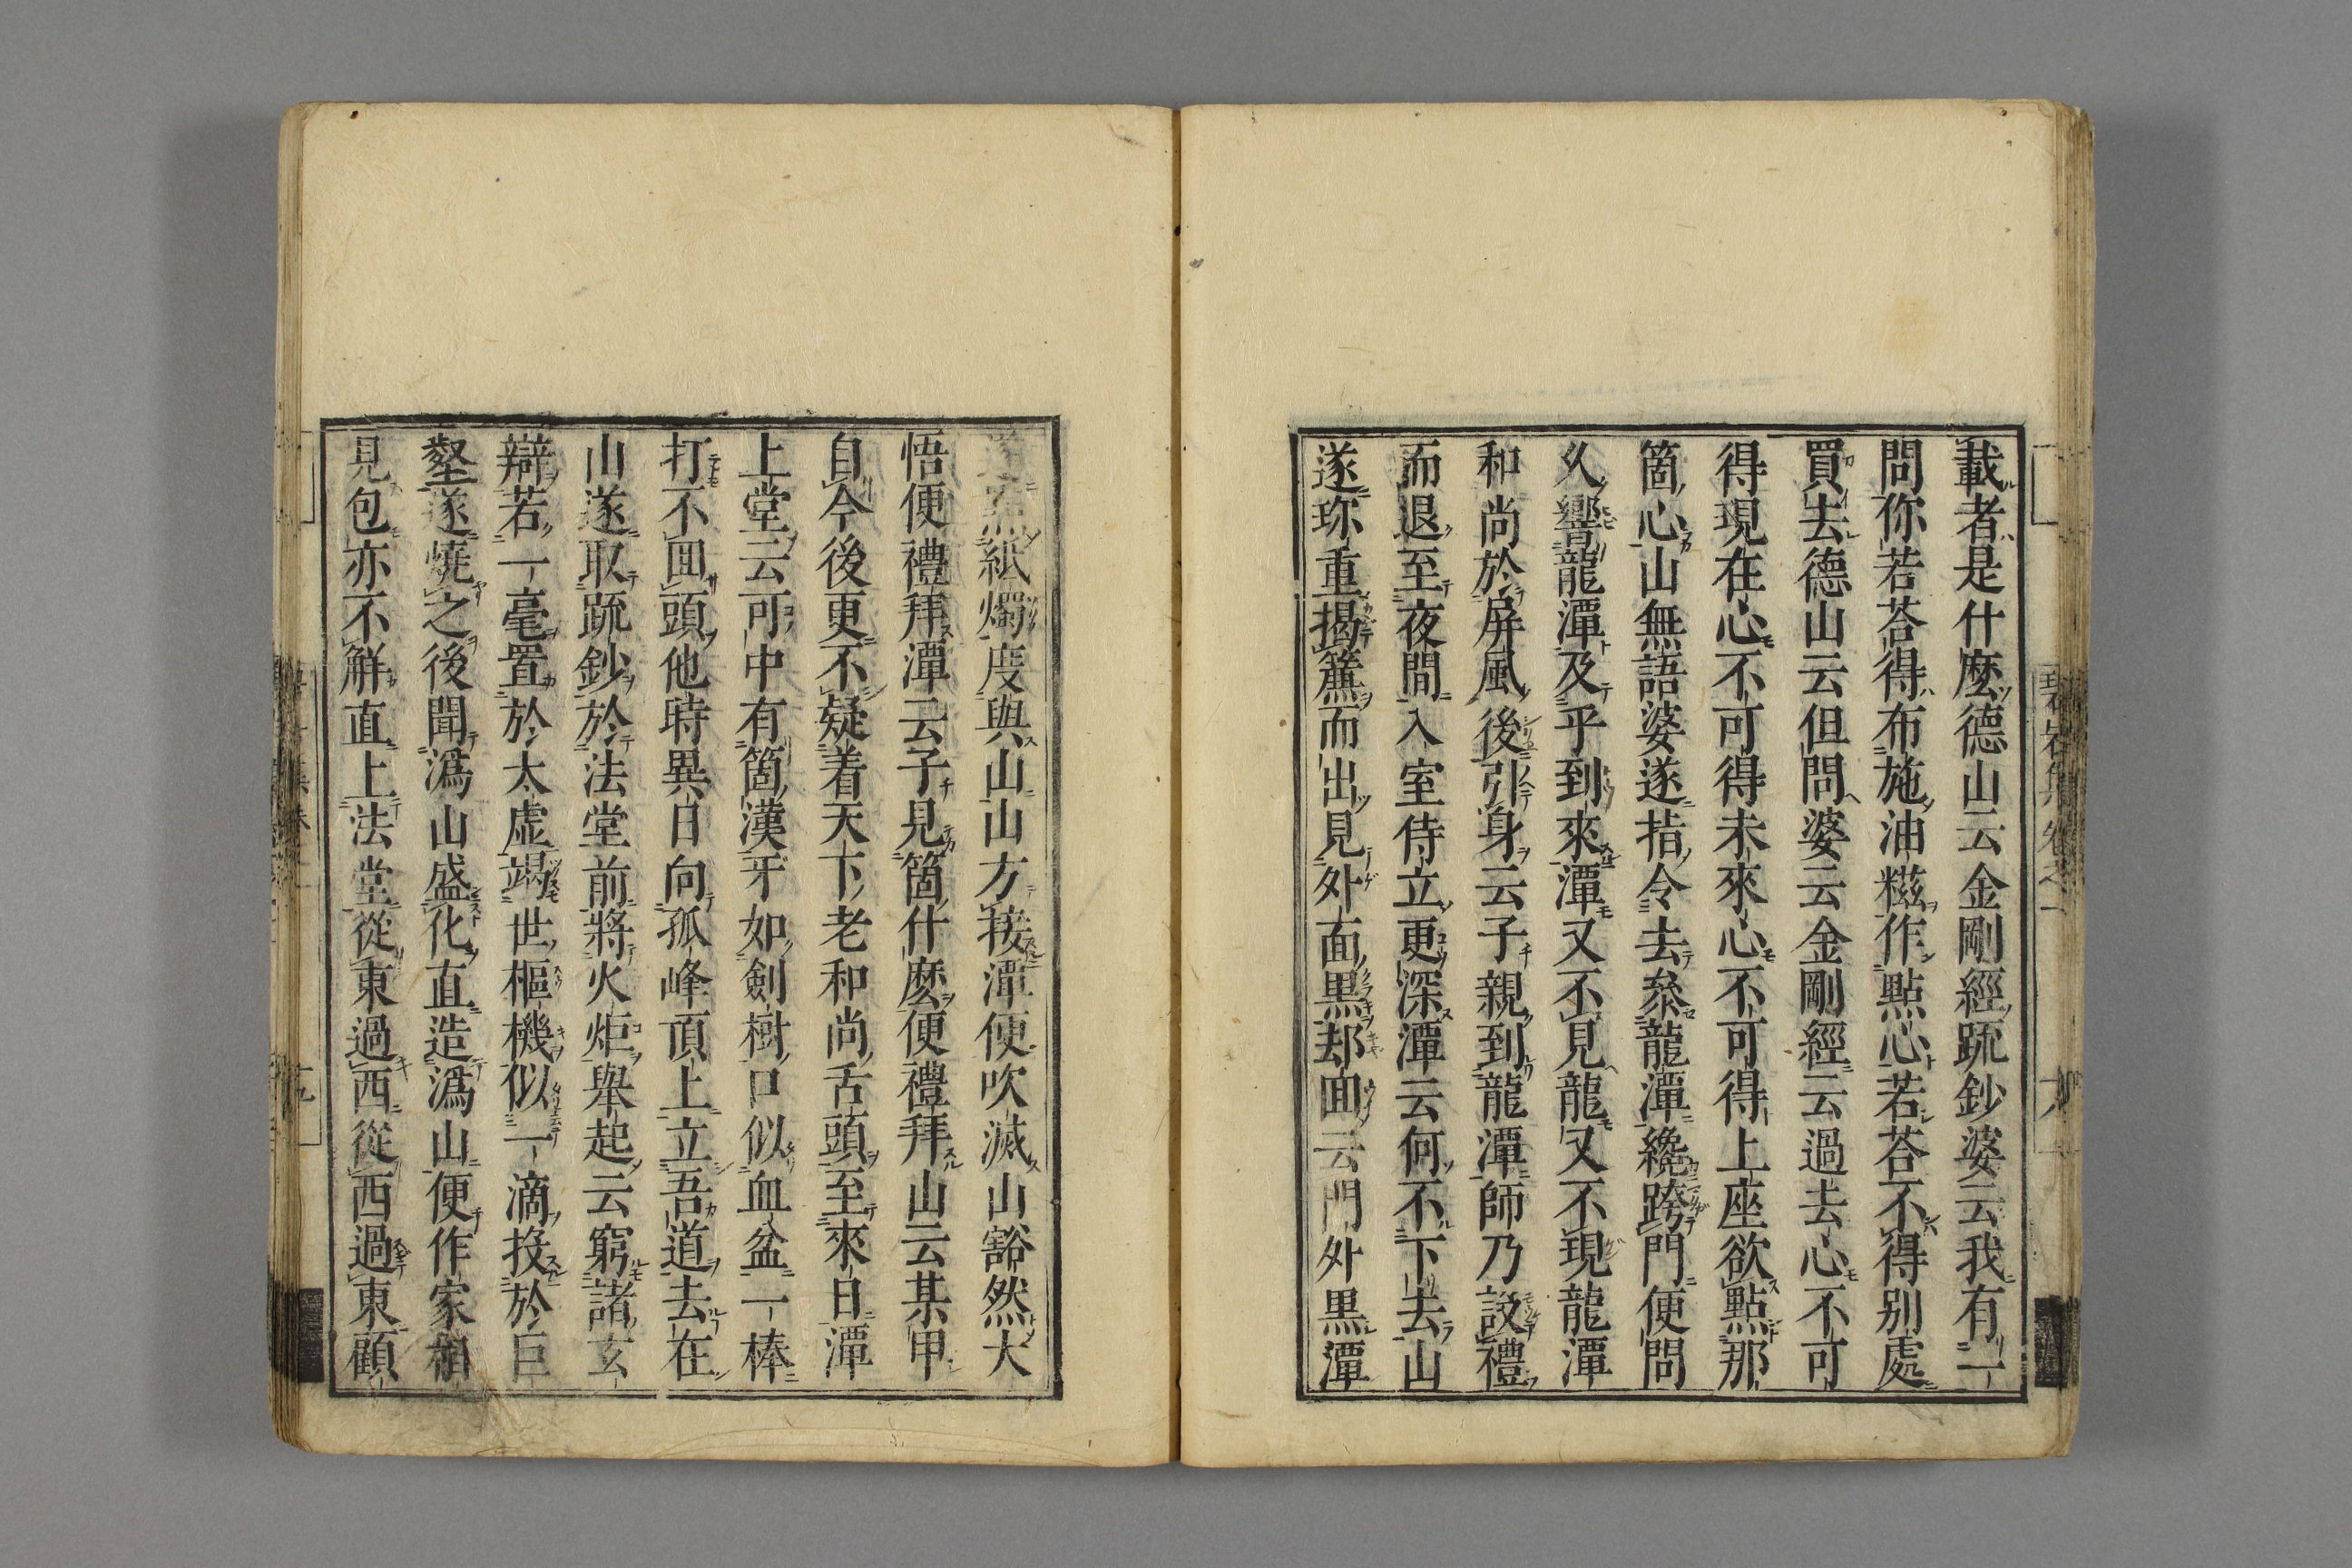 載者是什麼德山云金剛經疏鈔婆云我有一
問你若荅得布施油糍作點心若荅不得别處
買去德山云但問婆云金剛經云過去心不可
得現在心不可得未來心不可得上座欲點那
箇心山無語婆遂指令去叅龍潭纔跨門便問
久響龍潭及乎到來潭又不見龍又不現龍潭
和尚於屏風後引身云子親到龍潭師乃設禮
而退至夜間入室侍立更深潭云何不下去山
遂珎重揭簾而出見外面黒却囬云門外黒潭
遂點紙燭度與山山方接潭便吹滅山豁然大
悟便禮拜潭云子見箇什麽便禮拜山云某甲
自今後更不疑着天下老和尚舌頭至來日潭
上堂云可中有箇漢牙如劍樹口似血盆一棒
打不囬頭他時異日向孤峰頂上立吾道去在
山遂取疏鈔於法堂前將火炬舉起云窮諸玄
辯若一毫置於太虚竭世樞機似一滴投於巨
壑遂燒之後聞溈山盛化直造溈山便作家相
見包亦不解直上法堂從東過西從西過東顧